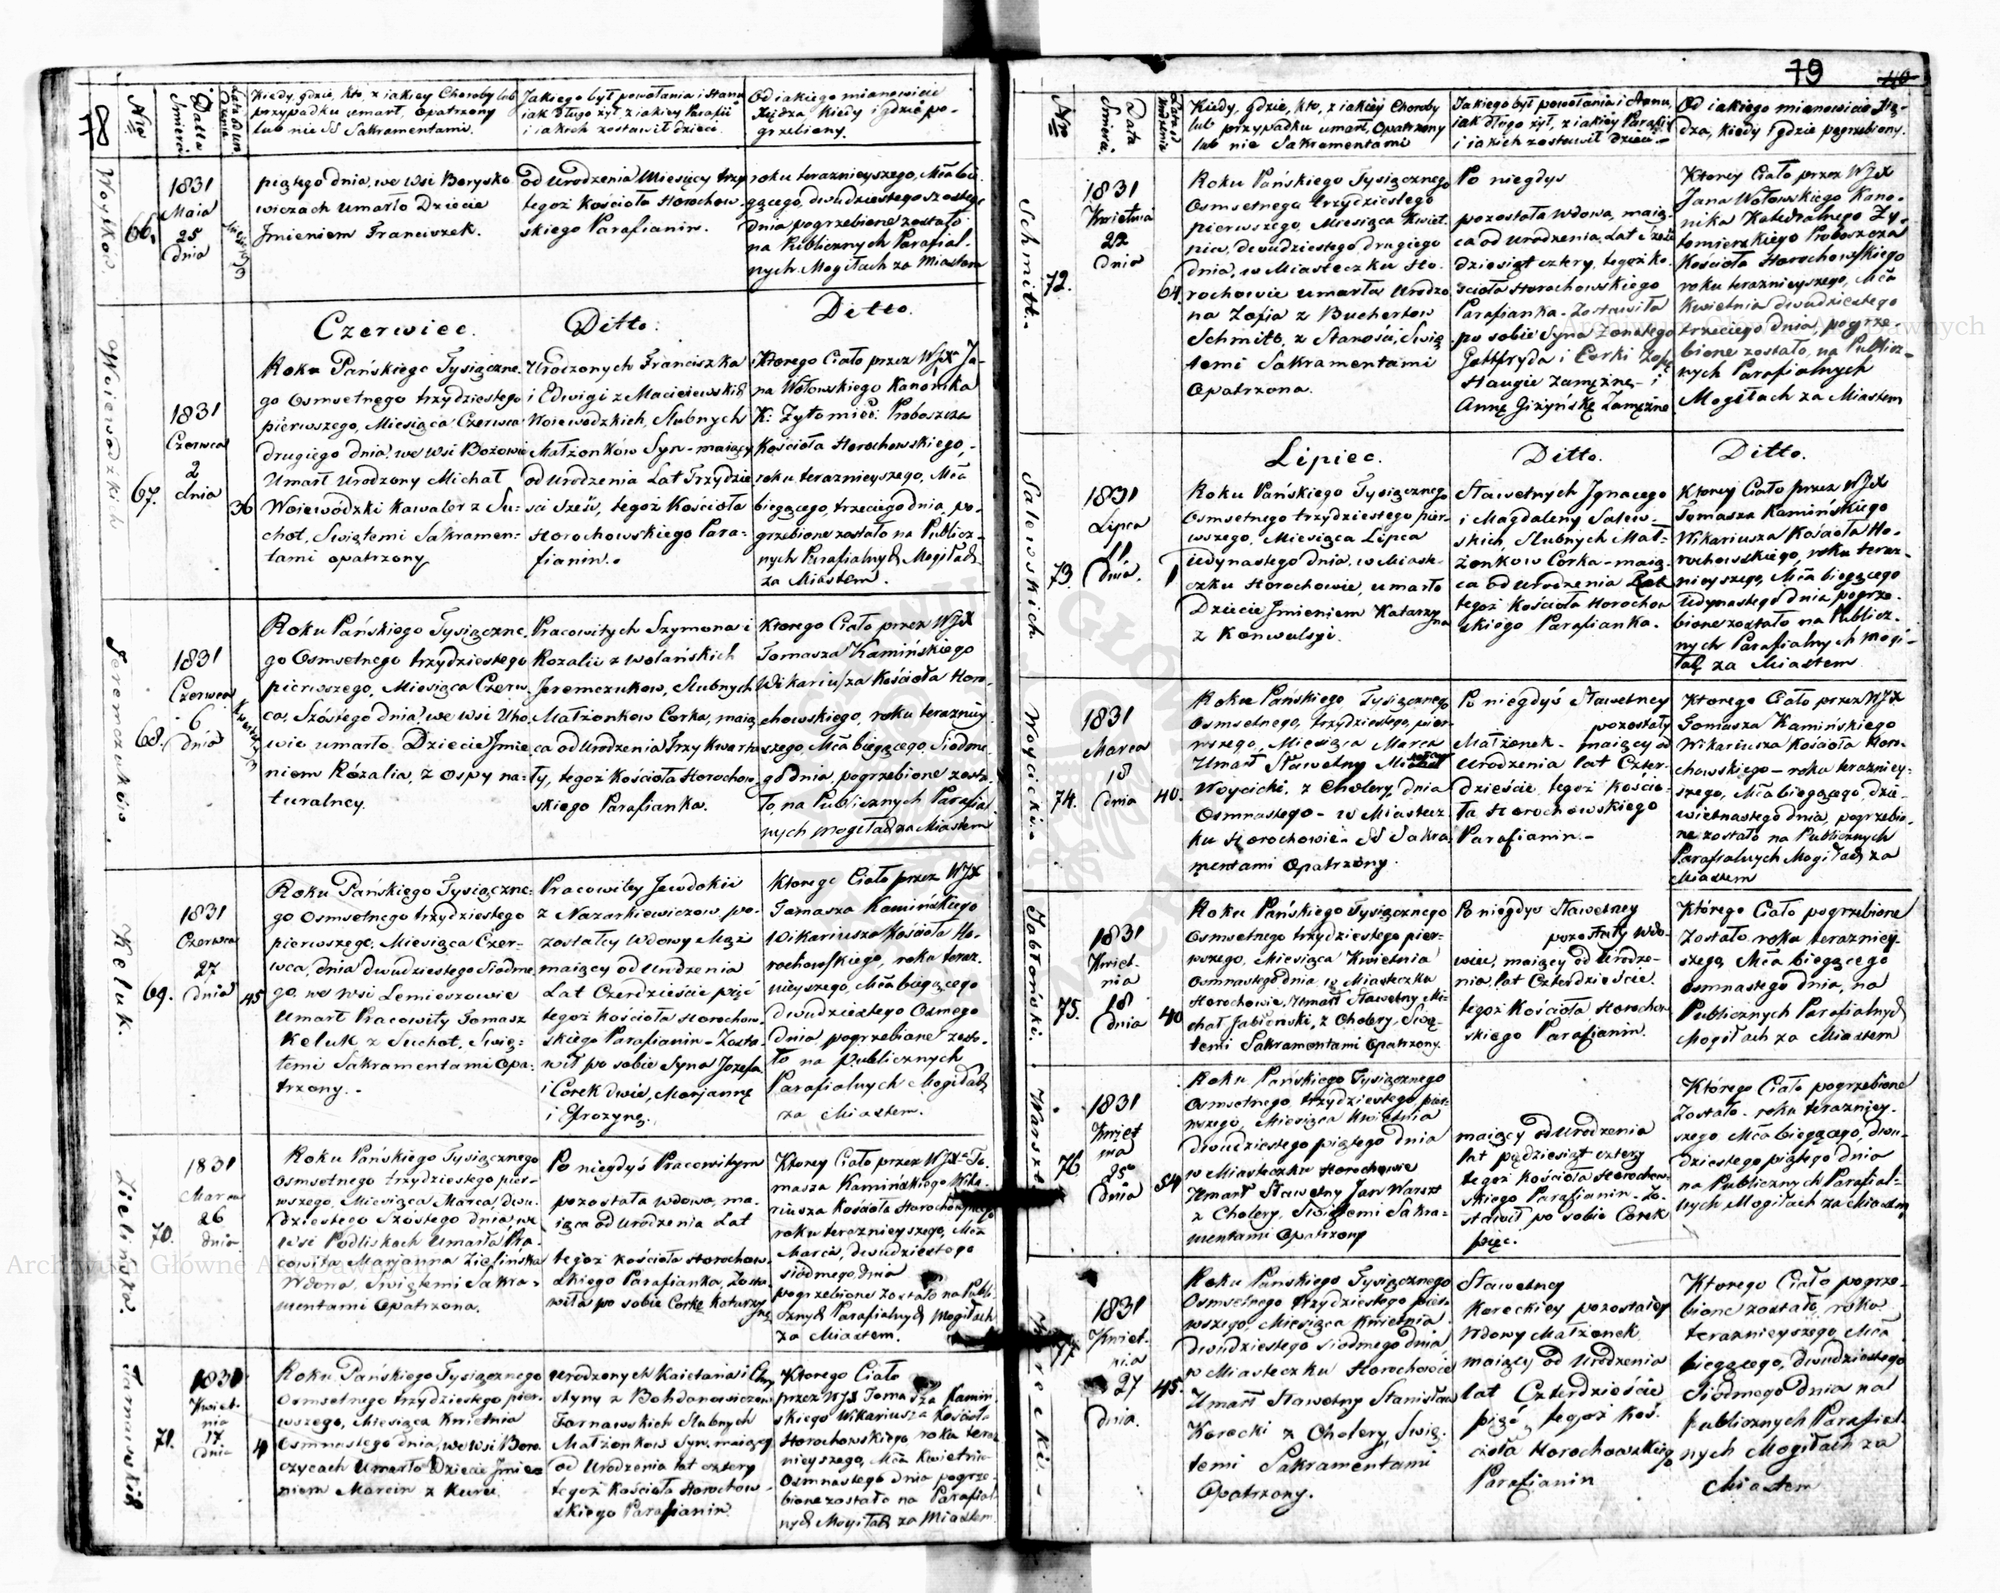 78
Nro
Data Śmierci
Kiedy, gdzie, kto, z iakiey Choroby lub
przypadku umarł, opatrzony
lub nie SS Sakramentami.
Jakiego był powołania i Stanu
iak długo żył, z iakiey Parafii
i iakich zostawił dzieci.
Od iakiego mianowicie
Xiędza, kiedy i gdzie po-
grzebiony.
Woyków
66.
1831
Maia
25
dnia
piątego dnia, we Wsi Borysko
wiczach umarło Dziecie
Jmieniem Franciszek.
od Urodzenia Miesięcy trzy
tegoż Kościoła Horochow-
skiego Parafianin.
roku teraznieyszego, Mca bie-
gącego, dwudziestego szostego
dnia pogrzebione zostało
na Publicznych Parafial-
nych Mogiłach za Miastem
Woiewodzkich
67.
1831
Czerwca
2
dnia
36
Czerwiec.
Roku Pańskiego Tysiączne-
go Osmsetnego trzydziestego
pierwszego, Miesiąca Czerwca
drugiego dnia, we Wsi Bożowie
Umarł Urodzony Michał
Woiewodzki Kawaler z Su-
chot, Swiętemi Sakramen-
tami opatrzony
Ditto.
Urodzonych Franciszka
i Edwigi z Macieiewskich
Woiewodzkich, Slubnych
Małżonków Syn - maiący
od Urodzenia Lat Trzydzie
sci sześć, tegoż Kościoła
Horochowskiego Para-
fianin.
Ditto.
Ktorego Ciało przez WJX Ja-
na Wołowskiego Kanonika
K: Zytomier: Proboszcza
Kościoła Horochowskiego,
roku teraznieyszego, Mca
biegącego, trzeciego dnia, po-
grzebione zostało na Publicz-
nych Parafialnych Mogiłach
za Miastem.
Jeremczuków.
68.
1831
Czerwca
6
dnia
Roku Pańskiego Tysiączne-
go Osmsetnego trzydziestego
pierwszego, Miesiąca Czerw-
ca, Szóstego dnia, we Wsi Uho
wie umarło, Dziecie Jmie
niem Rozalia, z ospy na-
turalney.
Pracowitych Szymona i
Rozalii z Wolańskich
Jeremczukow, Slubnych
Małżonkow Corka, maią
ca od Urodzenia Trzy Kwarta
ły, tegoż Kościoła Horochow
skiego Parafianka.
Ktorego Ciało przez WJX
Tomasza Kamińskiego
Wikariusza Kościoła Horo-
chowskiego, roku terazniey
szego, Mca biegącego, Siodme-
go dnia, pogrzebione zosta-
ło, na Publicznych Parafial
nych mogiłach za Miastem
Keluk.
69.
1831
Czerwca
27
dnia
45
Roku Pańskiego Tysiączne-
go Osmsetnego trzydziestego
pierwszego, Miesiąca Czer-
wca, dnia dwudziestego Siodme
go, we Wsi Lemieszowie
Umarł Pracowity Tomasz
Keluk z Suchot, Swię-
temi Sakramentami Opa-
trzony.
Pracowitey Jewdokii
z Nazarkiewiczow po-
zostałey Wdowy Mąż
maiący od Urodzenia
Lat Czterdzieście pięć
tegoż Kościoła Horochow-
skiego Parafianin - Zosta-
wił po sobie Syna Jozefa
i Corek dwie, Maryannę
i Efrozynę.
Ktorego Ciało przez WJX
Tomasza Kamińskiego
Wikariusza Kościoła Ho-
rochowskiego, roku teraz-
nieyszego, Mca biegącego
dwudziestego Osmego
dnia pogrzebione zosta-
ło na Publicznych
Parafialnych Mogiłach
za Miastem.
Zielińska.
70.
1831
Marca
26
dnia
Roku Pańskiego Tysiącznego
Osmsetnego trzydziestego pier-
wszego, Miesiąca Marca, dwu-
dziestego Szóstego dnia, we
Wsi Podliskach Umarła Pra-
cowita Maryanna Zielińska
Wdowa, Swiętemi Sakra-
mentami Opatrzona.
Po niegdyś Pracowitym
pozostała Wdowa, ma-
iąca od Urodzenia Lat
tegoż Kościoła Horochow-
skiego Parafianka, Zosta-
wiła po sobie Corkę Katarzy
nę
Ktorey Ciało przez WJX To-
masza Kamińskiego Wika-
riusza Kościoła Horochowskiego
roku teraznieyszego, Mca
Marca, dwudziestego
siódmego dnia
pogrzebione Zostało na Publi-
cznych Parafialnych Mogiłach
za Miastem.
Tarnawskich
71.
1831
Kwiet-
nia
17
dnia
4
Roku Pańskiego Tysiącznego
Osmsetnego trzydziestego pier-
wszego, Miesiąca Kwietnia
Osmnastego dnia, we Wsi Boro-
czycach Umarło Dziecie Jmie-
niem Marcin z Kuru
Urodzonych Kaietana i Chry
styny z Bohdanowiczow
Tarnawskich Slubnych
Małżonkow Syn, maiący
od Urodzenia lat cztery
tegoż Kościoła Horochow-
skiego Parafianin.
Ktorego Ciało
przez WJX Tomasza Kamin-
skiego Wikariusza Kościoła
Horochowskiego roka teraz
nieyszego, Mca Kwietnia
Osmnastego dnia pogrze-
bione zostało na Parafial-
nych Mogiłach za Miastem.
79
40
Nro
Data
Smierci.
Kiedy, gdzie, kto, z iakiey Choroby
lub przypadku umarł, Opatrzony
lub nie Sakramentami
Jakiego był powołania i Stanu,
iak długo żył, z iakiey Parafii
i iakich zostawił Dzieci.
Od iakiego mianowicie Xię-
dza, kiedy i gdzie pogrzebiony.
Schmitt.
72.
1831
Kwietnia
22
dnia
64.
Roku Pańskiego Tysiącznego
Osmsetnego trzydziestego
pierwszego, Miesiąca Kwiet-
nia, dwudziestego drugiego
dnia, w Miasteczku Ho-
rochowie umarła Urodzo
na Zofia z Buchertow
Schmitt, z Starości, Swię
temi Sakramentami
Opatrzona.
Po niegdys
pozostała Wdowa, maią-
ca od Urodzenia Lat Sześć
dziesiąt cztery, tegoż Ko-
ścioła Horochowskiego
Parafianka - Zostawiła
po sobie Syna Żonatego
Gottfryda i Corki Zofię
Haugie zamężnę - i
Annę Giżyńskę Zamężnę
Ktorey Ciało przez WJX
Jana Wołowskiego Kano-
nika Katedralnego Zy-
tomierzkiego Proboszcza
Kościoła Horochowskiego
roku teraznieyszego, Mca
Kwietnia dwudziestego
trzeciego dnia, pogrze
bione zostało, na Publicz-
nych Parafialnych
Mogiłach za Miastem
Salewskich.
73.
1831
Lipca
11
dnia.
1
Lipiec.
Roku Pańskiego Tysiącznego
Osmsetnego trzydziestego pier-
wszego, Miesiąca Lipca
iedynastego dnia, w Miaste-
czku Horochowie, umarło
Dziecie Jmieniem Katarzy
na
z Konwulsyi.
Ditto.
Sławetnych Jgnacego
i Magdaleny Salew-
skich Slubnych Mał-
żonkow Corka - maią-
ca od Urodzenia Rok
tegoż Kościoła Horochow
skiego Parafianka.
Ditto.
Ktorey Ciało przez WJX
Tomasza Kamińskiego
Wikariusza Kościoła Ho-
rochowskiego, roku teraz-
nieyszego, Mca biegącego
iedynastego dnia, pogrze-
bione zostało na Publicz-
nych Parafialnych mogi-
łach za Miastem
Woycicki.
74.
1831
Marca
18
dnia
40.
Roku Pańskiego Tysiącznego
Osmsetnego, trzydziestego, pier-
wszego, Miesiąca Marca
Umarł Sławetny
Woycicki, z Cholery, dnia
Osmnastego - w Miastecz
ku Horochowie - SS Sakra-
mentami Opatrzony.
Po niegdyś Sławetney
pozostały
Małżonek - maiący od
Urodzenia lat Czter-
dzieście, tegoż Kościo-
ła Horochowskiego
Parafianin.-
Ktorego Ciało przez WJX
Tomasza Kamińskiego
Wikariusza Kościoła Horo-
chowskiego - roku terazniey-
szego, Mca biegącego, dzie-
wietnastego dnia, pogrzebio-
ne zostało na Publicznych
Parafialnych Mogiłach za
Miastem
Jabłoński.
75.
1831
Kwiet-
nia
18
dnia
40
Roku Pańskiego Tysiącznego
Osmsetnego trzydziestego pier-
wszego, Miesiąca Kwietnia
Osmnastego dnia, w Miasteczku
Horochowie, Umarł Sławetny Mi-
chał Jabłoński, z Cholery, Swię-
temi Sakramentami Opatrzony.
Po niegdys Sławetney
pozostały Wdo-
wiec, maiący od Urodze-
nia, lat Czterdzieście.
tegoż Kościoła Horochow
skiego Parafianin.
Którego Ciało pogrzebione
Zostało roku terazniey-
szego, Mca biegącego
osmnastego dnia, na
Publicznych Parafialnych
Mogiłach za Miastem
Warszt
76
1831
Kwiet
nia
25
dnia
54
Roku Pańskiego Tysiącznego
Osmsetnego, trzydziestego pier-
wszego, Miesiąca Kwietnia
dwudziestego piątego dnia
w Miasteczku Horochowie
Umarł Sławetny Jan Warszt
z Cholery, Swiętemi Sakra-
mentami Opatrzony
maiący od Urodzenia
lat pędziesiąt cztery
tegoż Kościoła Horochow-
skiego Parafianin - Zo-
stawił po sobie Corek
pięc.
Którego Ciało pogrzebione
Zostało - roku terazniey-
szego Mca biegącego, dwu-
dziestego piątego dnia
na Publicznych Parafial-
nych Mogiłach za Miastem
Korecki.
77
1831
Kwiet-
nia
27
dnia.
45.
Roku Pańskiego Tysiącznego
Osmsetnego trzydziestego pier-
wszego, Miesiąca Kwietnia
dwudziestego Siodmego dnia
w Miasteczku Horochowie
Umarł Sławetny Stanisław
Korecki z Cholery, Swię-
temi Sakramentami
Opatrzony.
Sławetney
Koreckiey pozostałey
Wdowy Małżonek
maiący od Urodzenia
lat Czterdzieście
pięć, tegoż Koś-
cioła Horochowskiego
Parafianin
Ktorego Ciało pogrze-
bione zostało, roku
teraznieyszego, Mca
biegącego, dwudziestego
Siodmego dnia na
publicznych Parafial-
nych Mogiłach za
Miastem